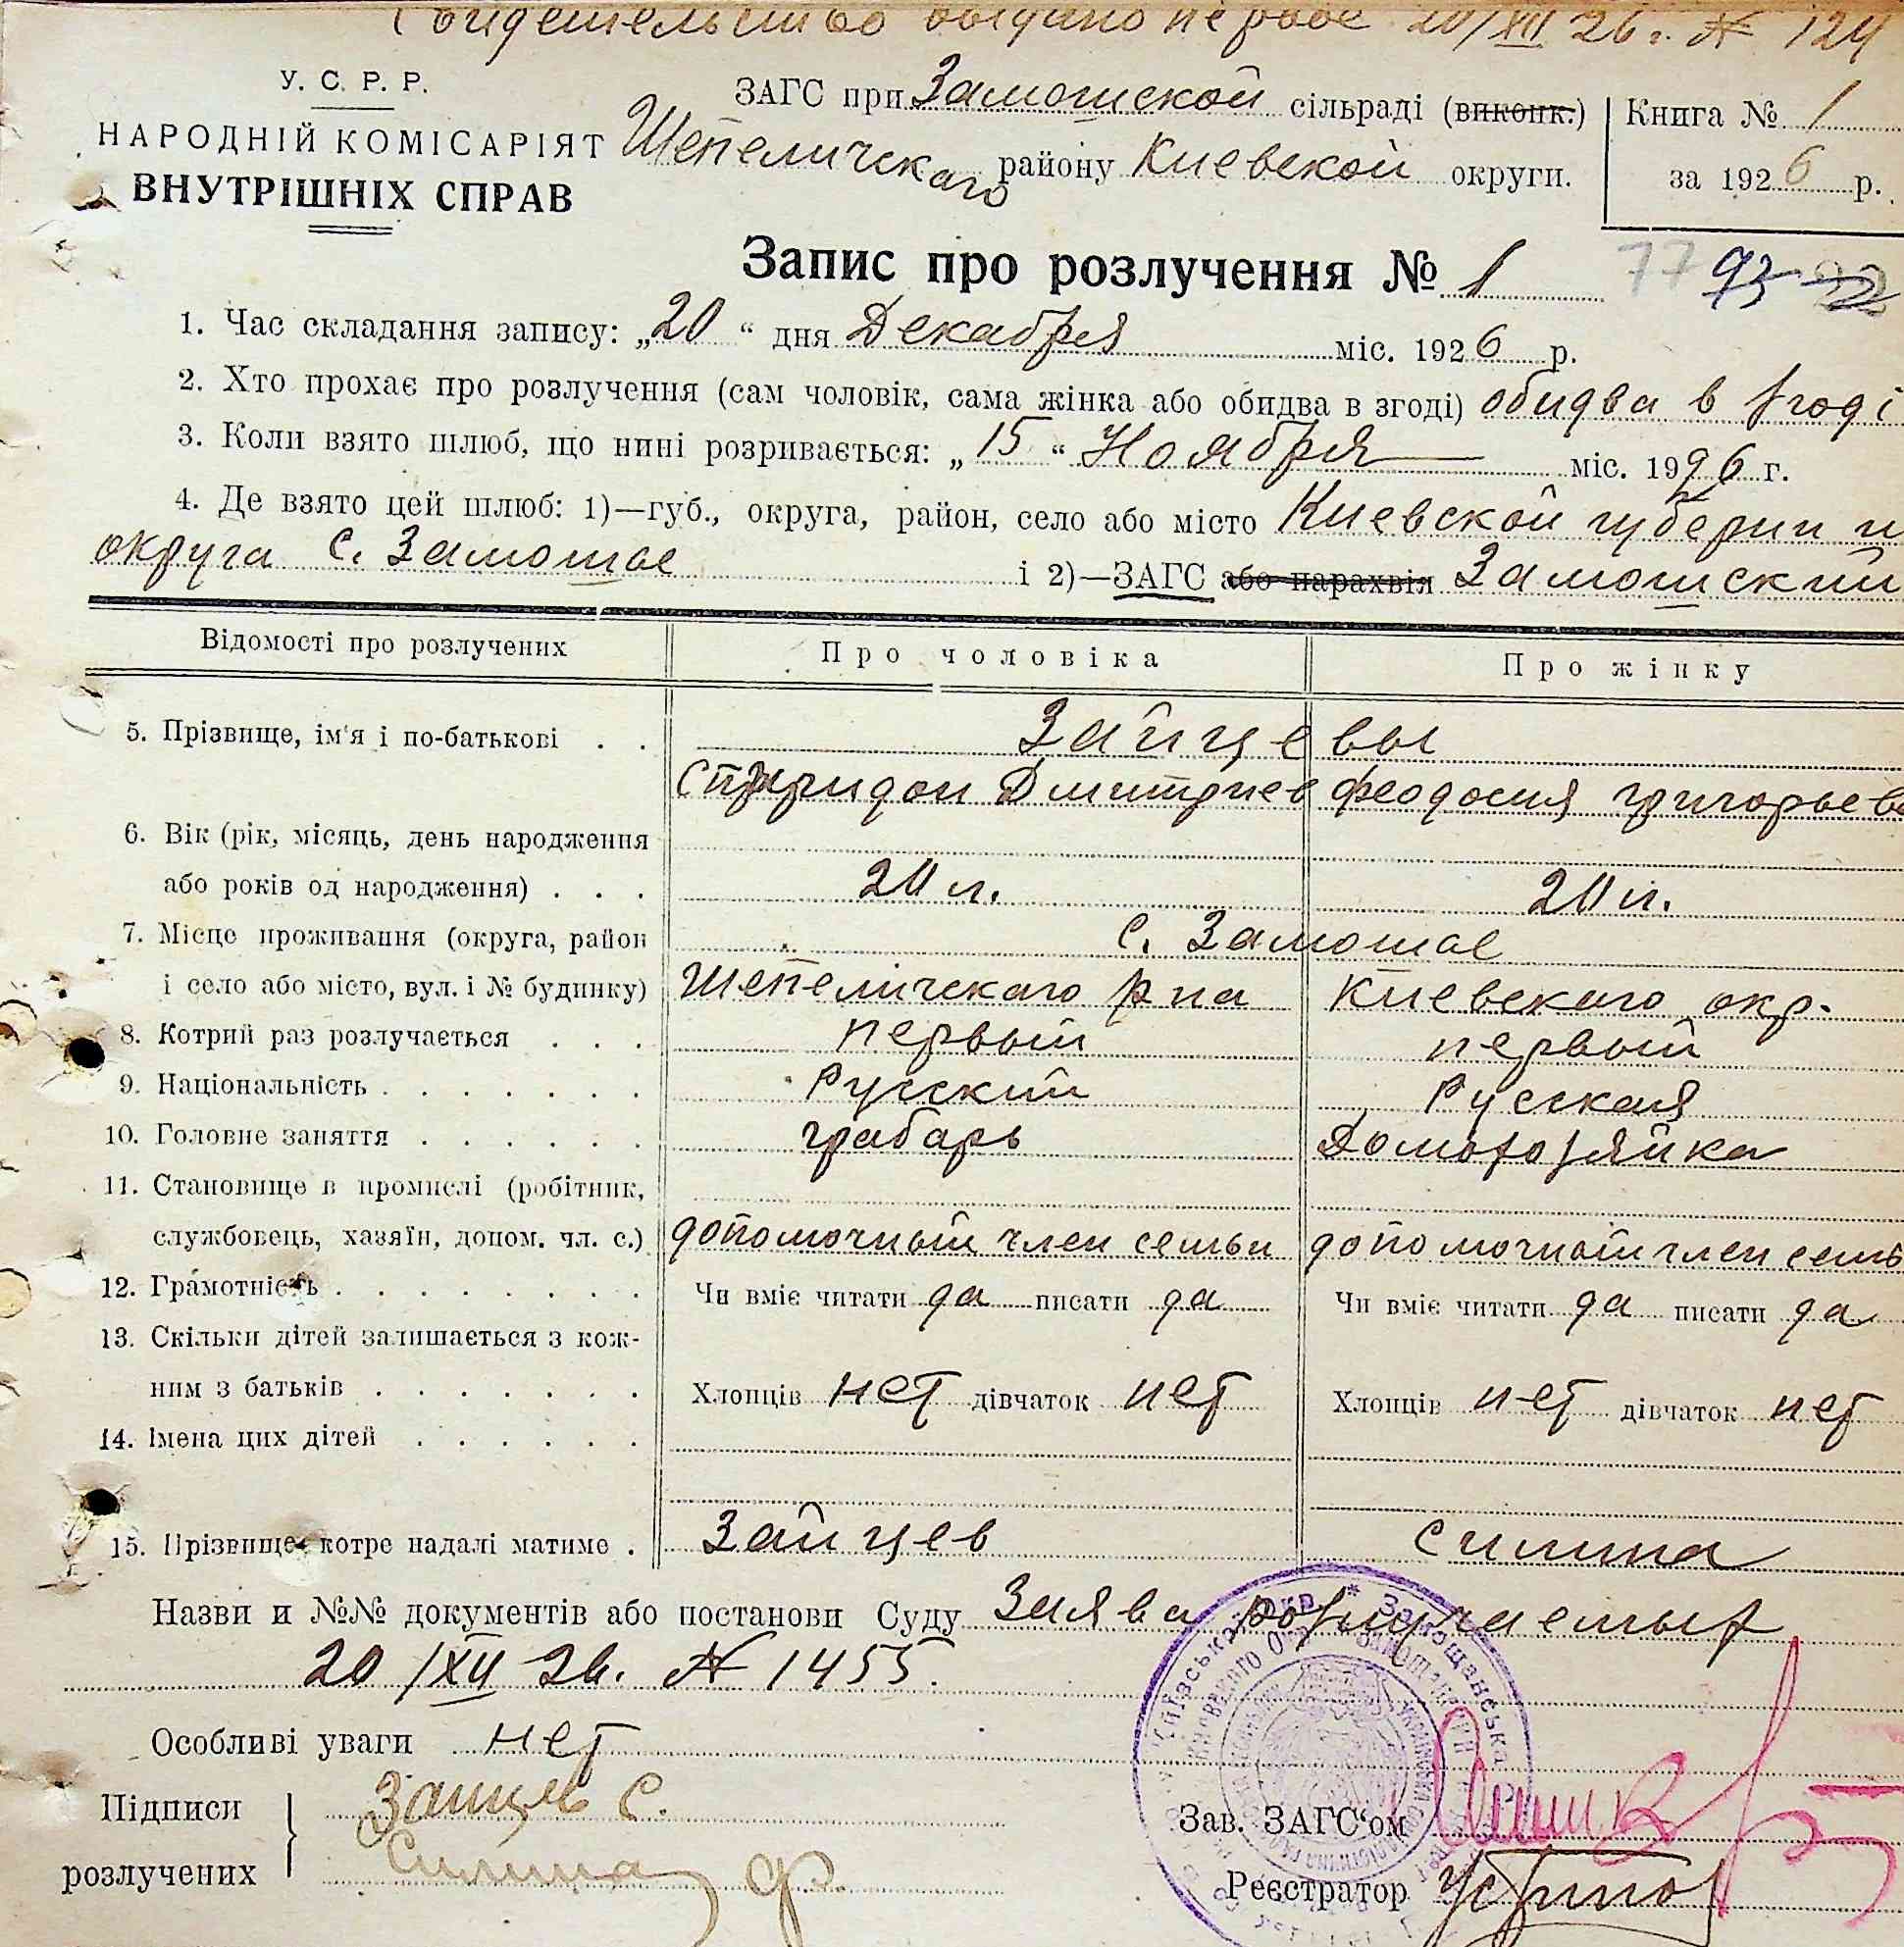 Свидетельство выдано первое 20/XII 26 г. № 124
У. С. Р. Р.
НАРОДНІЙ КОМІСАРІЯТ
ВНУТРІШНІХ СПРАВ
ЗАГС при Замошской сільраді (виконк.)
Шепеличскаго району Киевской округи.
Книга № 1
за 1926 р.
Запис про розлучення № 1
77 93
1. Час складання запису: „20“ дня Декабря міс. 1926 р.
2. Хто прохає про розлучення (сам чоловік, сама жінка або обидва в згоді) обидва в згоді
3. Коли взято шлюб, що нині розривається: „15“ Ноября міс. 1926 г.
4. Де взято цей шлюб: 1)—губ., округа, район, село або місто Киевской губерии и
округа с. Замошье і 2)—ЗАГС або парахвія Замошский
Відомості про розлучених Про чоловіка Про жінку
5. Прізвище, ім'я і по-батькові . . Зайцевы
Спиридон Дмитриев Феодосия григорьев
6. Вік (рік, місяць, день народження
або років од народження) . . . 20 л. 20 л.
7. Місце проживання (округа, район с. Замошье
і село або місто, вул. і № будинку) Шепеличскаго р на Киевскаго окр.
8. Котрий раз розлучається . . . первый первый
9. Національність . . . . . . . Русский Русская
10. Головне заняття . . . . . . грабарь Домохозяйка
11. Становище в промислі (робітник,
службовець, хазяїн, допом. чл. с.) допомочный член семьи допомочный член семь
12. Грамотність . . . . . . . . Чи вміє читати да писати да Чи вміє читати да писати да
13. Скільки дітей залишається з кож-
ним з батьків . . . . . . . Хлопців нет дівчаток нет Хлопців нет дівчаток нет
14. Імена цих дітей . . . . . .
15. Прізвище, котре надалі матиме . Зайцев Силина
Назви и №№ документів або постанови Суду Заява розлучаемых
20/XII 26. № 1455.
Особливі уваги нет
Підписи Зайцев С.
розлучених Силина Ф.
Зав. ЗАГС‘ом
Реєстратор